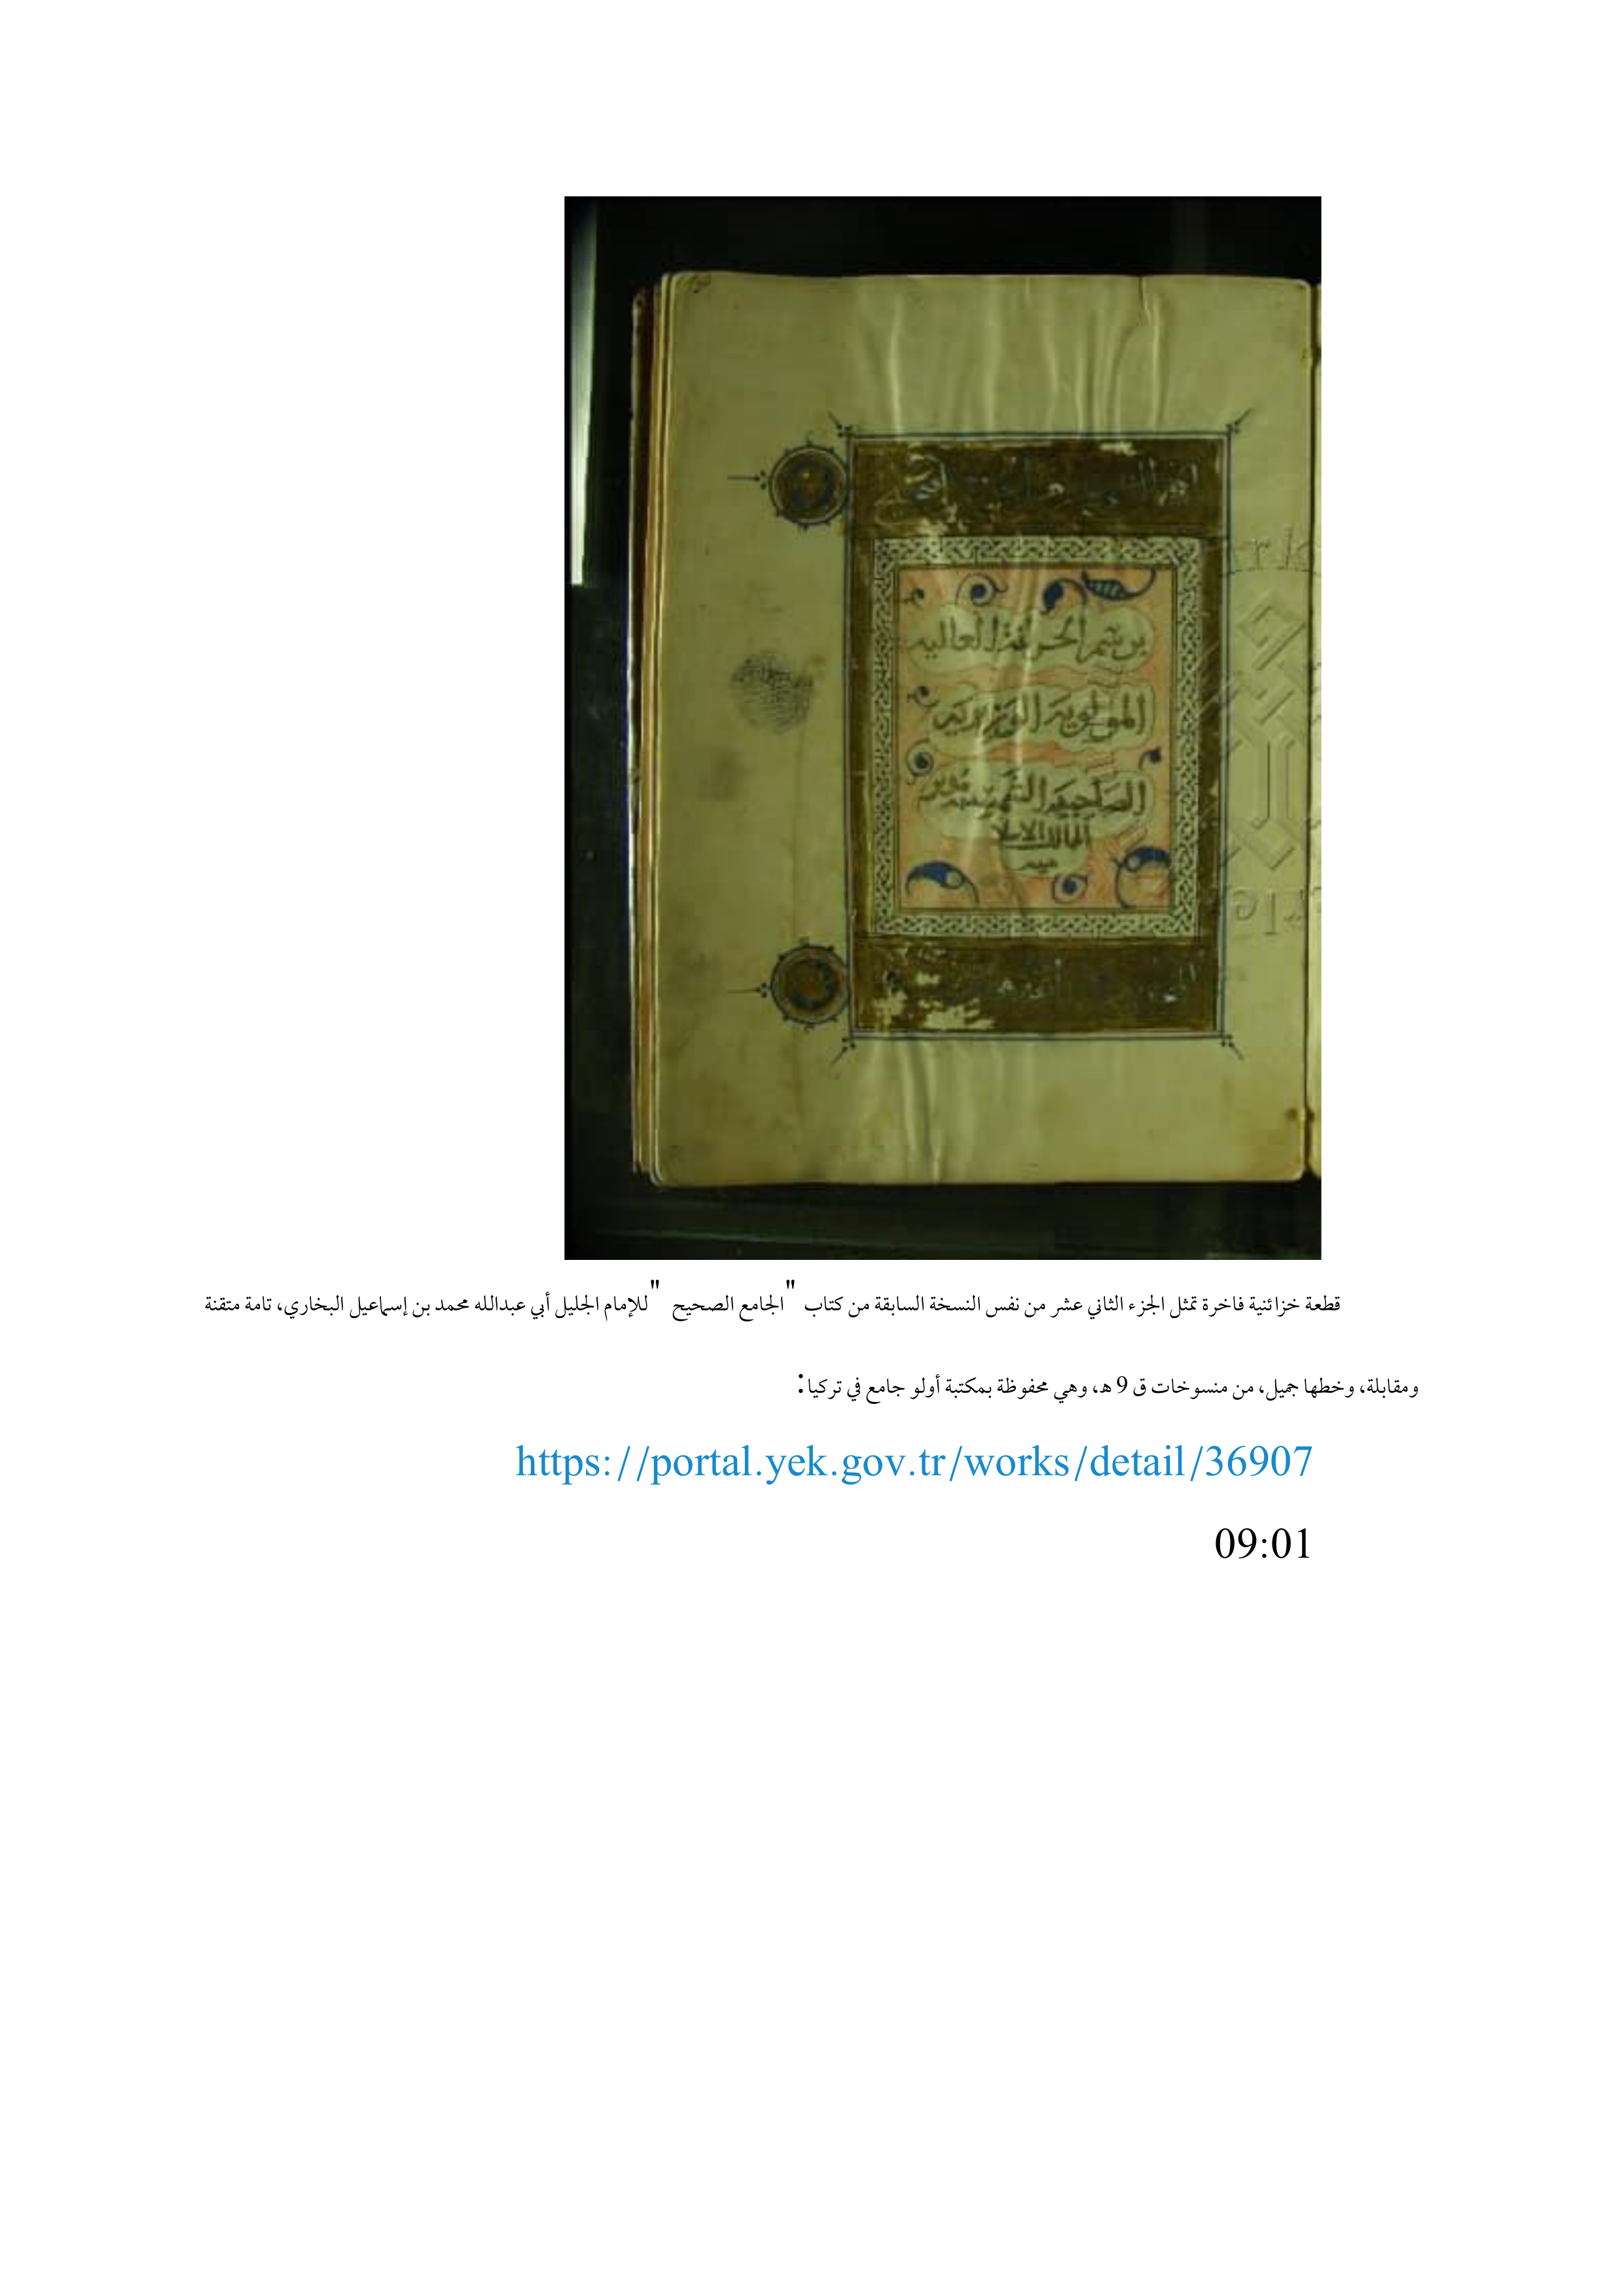 برسم الخزانة العاليه
المولويه الوزيريه
الصاحبيه
قطعة خزائنية فاخرة تمثل الجزء الثاني عشر من نفس النسخة السابقة من كتاب "الجامع الصحيح "للإمام الجليل أبي عبدالله محمد بن إسماعيل البخاري، تامة متقنة
ومقابلة، وخطها جميل، من منسوخات ق 9 هـ، وهي محفوظة بمكتبة أولو جامع في تركيا:
https://portal.yek.gov.tr/works/detail/36907
09:01